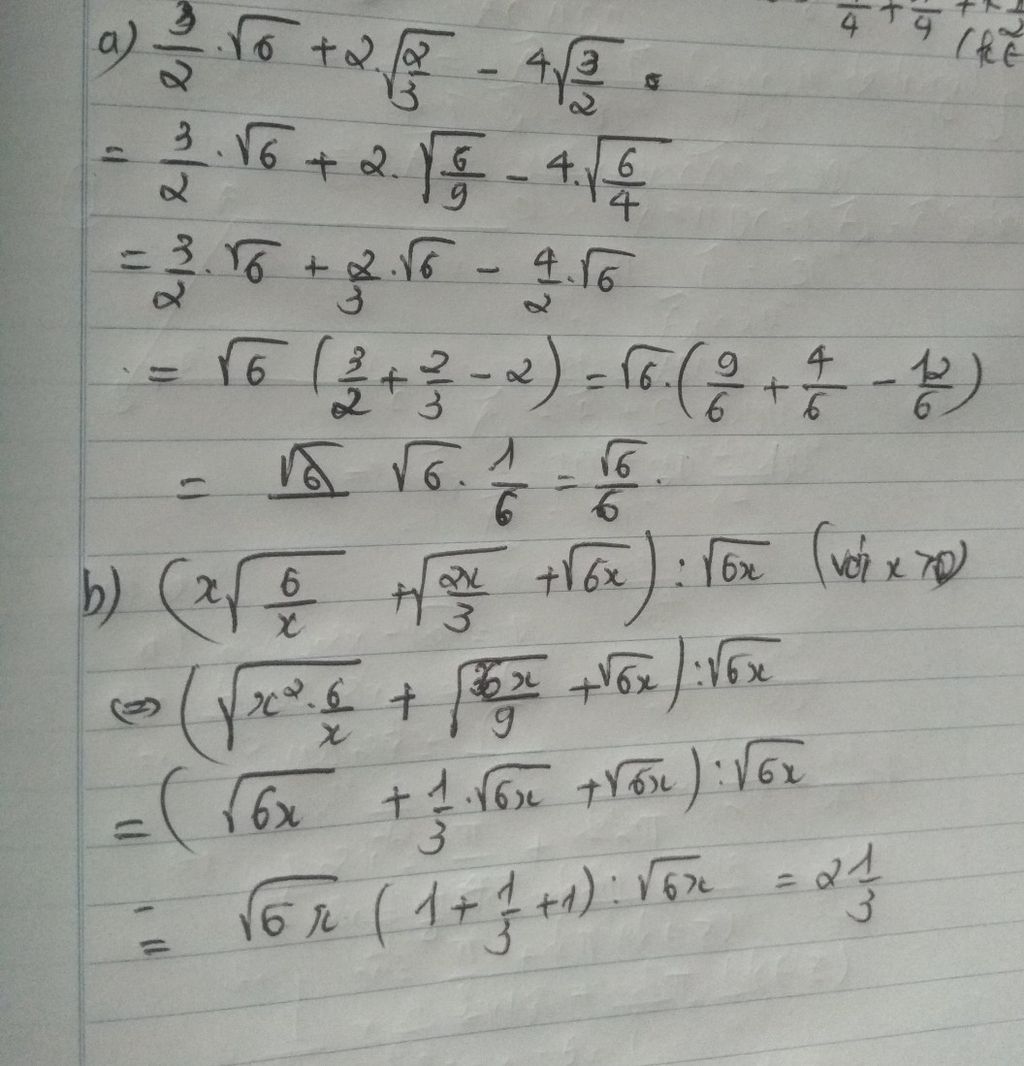 a) 3/2 . √6 + 2.√(2/3) - 4√(3/2)
= 3/2 . √6 + 2. √(6/9) - 4.√(6/4)
= 3/2 . √6 + 2/3 . √6 - 4/2 . √6
= √6 (3/2 + 2/3 - 2) = √6.(9/6 + 4/6 - 12/6)
= √6 . 1/6 = √6/6 .
b) (x√(6/x) + √(2x/3) + √6x) : √6x (với x>0)
⇔ (√(x² . 6/x) + √(6x/9) + √6x) : √6x
= (√6x + 1/3 . √6x + √6x) : √6x
= √6x (1 + 1/3 + 1) : √6x = 2 1/3